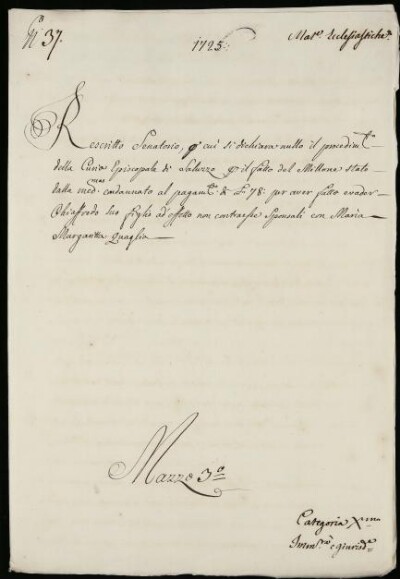 N.° 37.
1725.
Mat.e Ecclesiastiche
Rescritto Senatorio, p cui si dichiara nullo il procedim.to
della Curia Episcopale di Saluzzo p il fatto del Millone stato
dalla med.ma condannato al pagam.to di L. 78. per aver fatto evader
Chiaffredo suo figlio ad effetto non contraesse Sponsali con Maria
Margarita Quaglia
Mazzo 3.°
Categoria X.ma
Imm.tà e giurisd.e